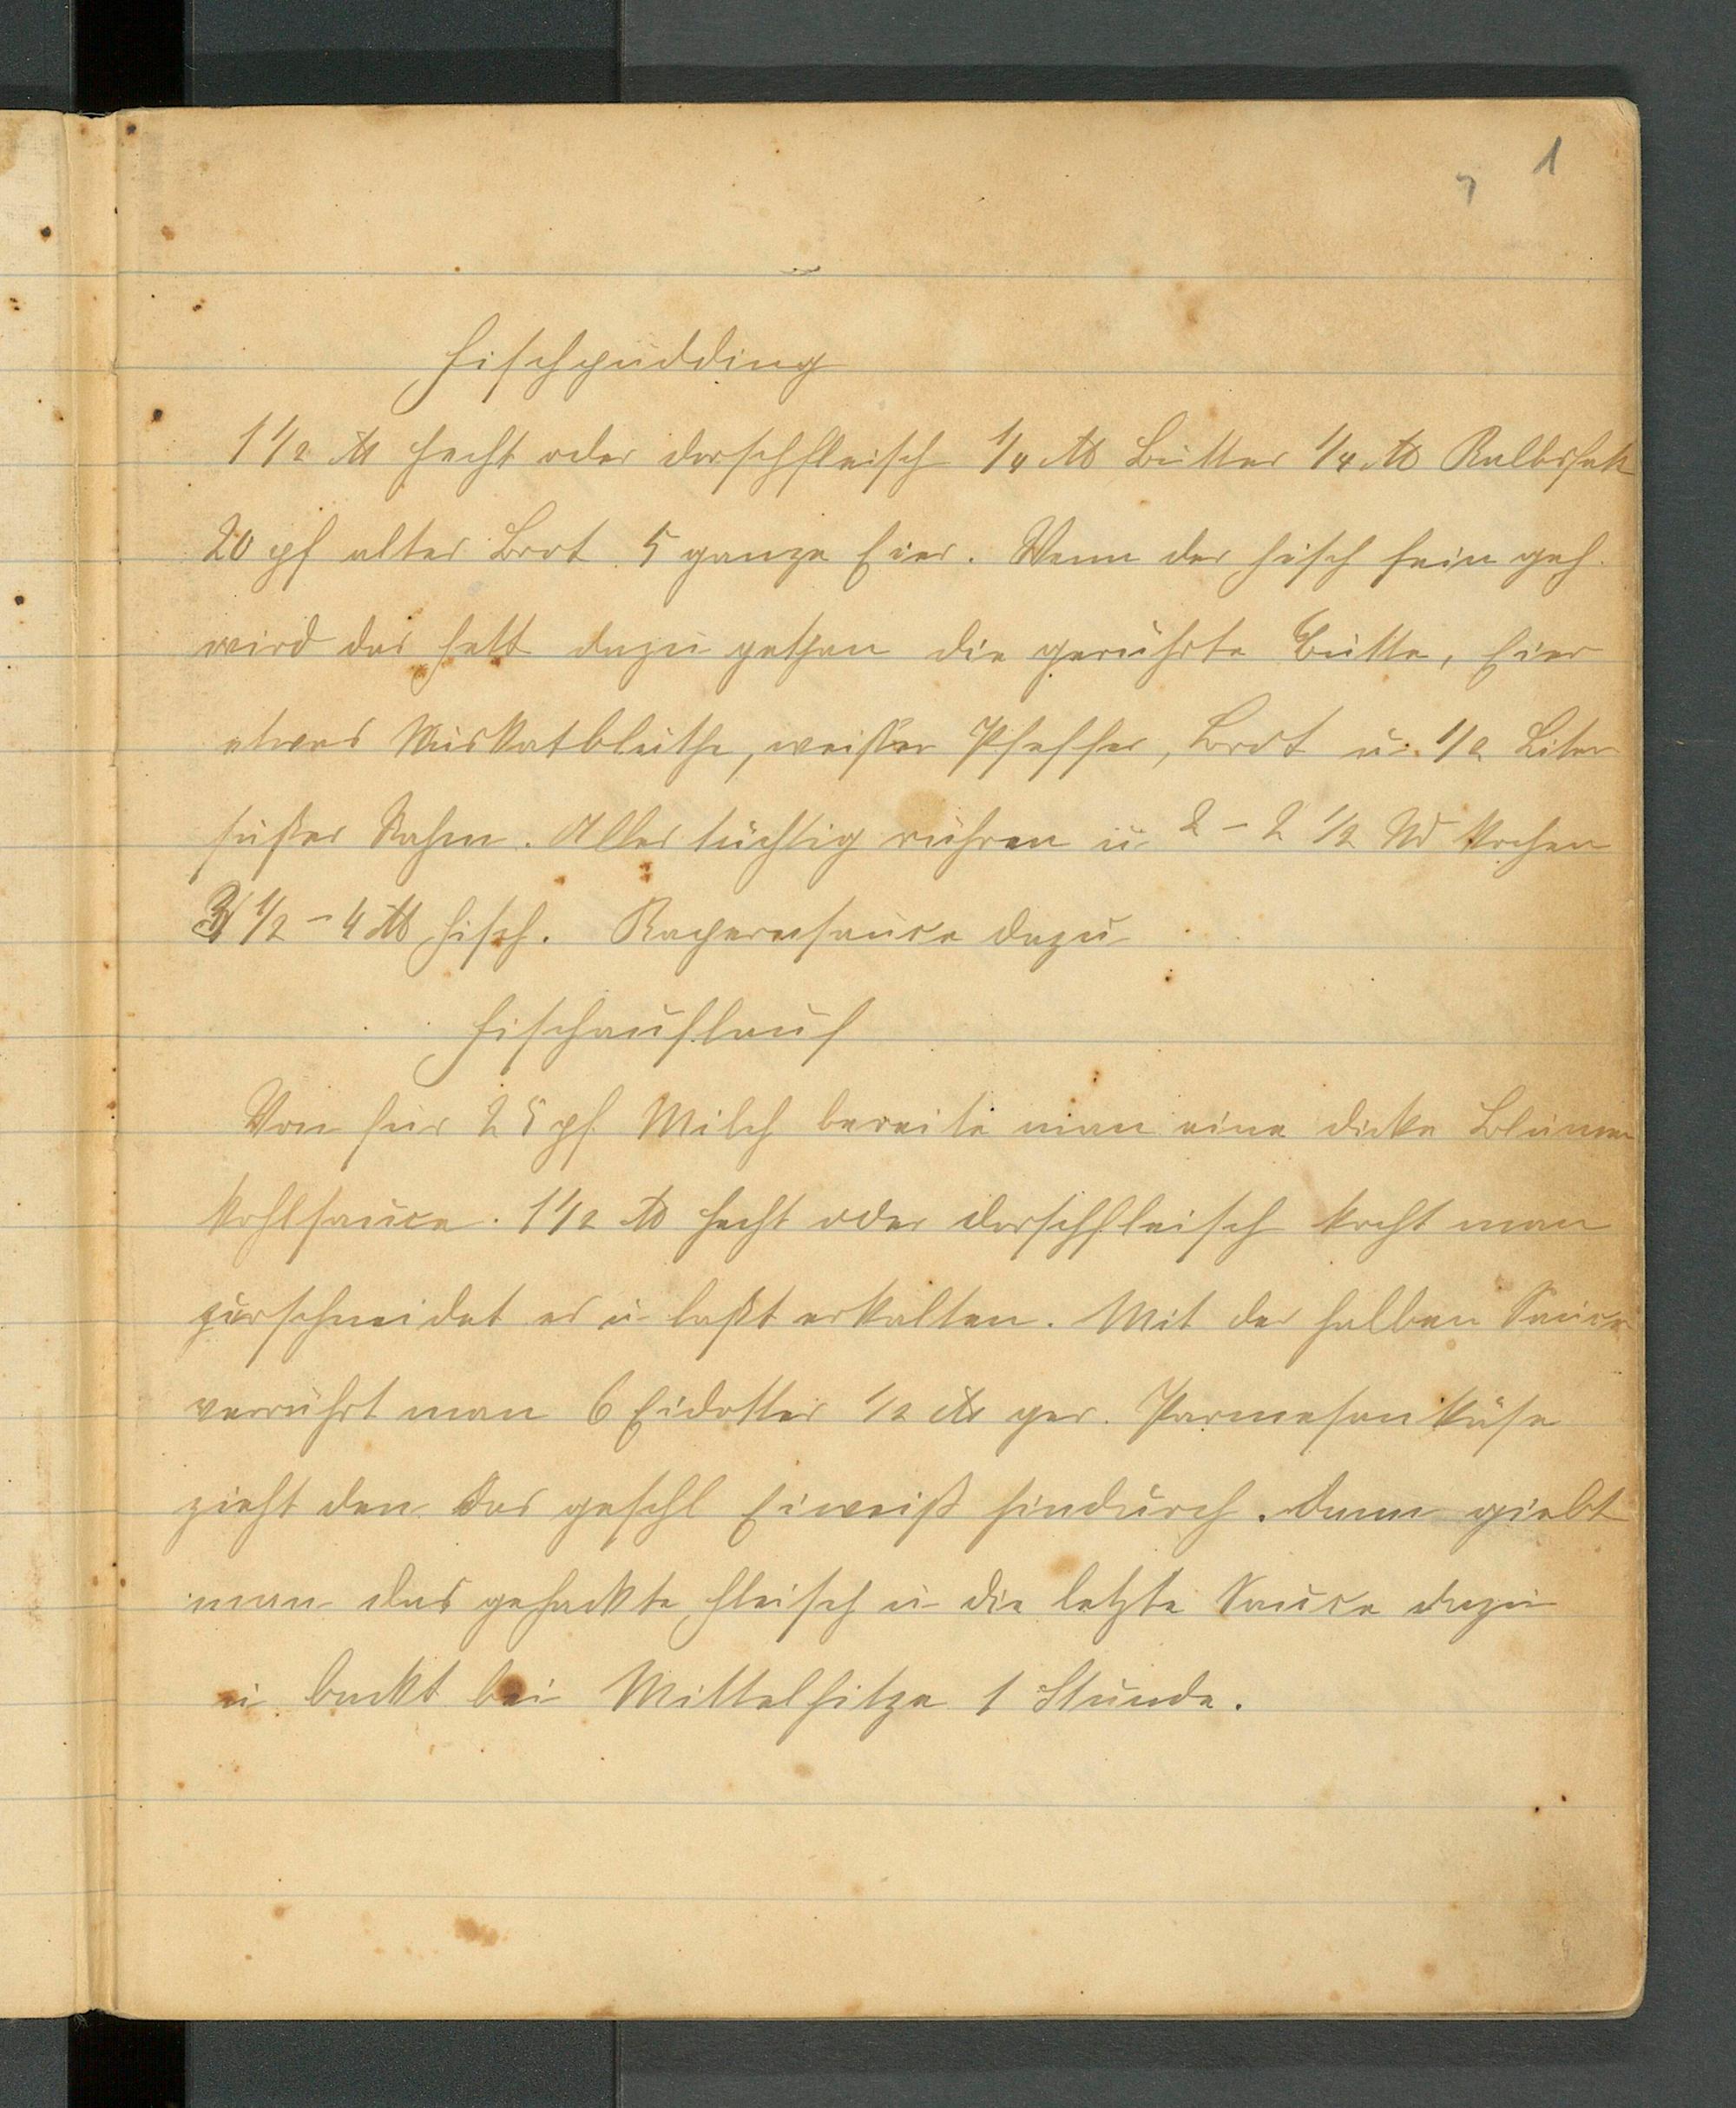 1
Fischpudding
1 1/2 ℔ Hecht oder Dorschfleisch 1/4 ℔ Butter 1/4 ℔ Kalbsfett
20 pf altes Brot 5 ganze Eier. Wenn der Fisch fein geh.
wird das Fett dazu gethan die gerührte Butte, Eier
etwas Muskatblüthe, weißer Pfeffer, Brot u. 1/2 Liter
süßer Rahm. Alles tüchtig rühren u 2 - 2 1/2 kochen
3 1/2 - 4 ℔ Fisch. Kapernsauce dazu
Fischauflauf
Von für 25 pf Milch bereite man eine dicke Blumen
kohlsauce. 1 1/2 ℔ Hecht oder Dorschfleisch kocht man
zerschneidet es u laßt erkalten. Mit der halben Sauce
verrührt man 6 Eidotter 1/2 ℔ ger. Parmesankäse
zieht den das geschl Eiweiß hindurch. Dann giebt
man das gehackte Fleisch u die letzte Sauce dazu
u backt bei Mittelhitze 1 Stunde.